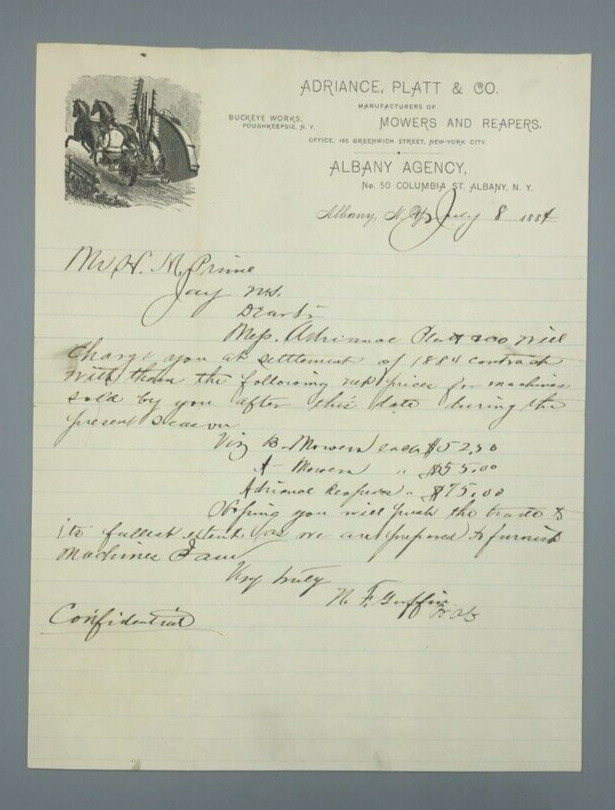 ADRIANCE, PLATT & CO.
MANUFACTURERS OF
BUCKEYE WORKS,
POUGHKEEPSIE, N.Y.
MOWERS AND REAPERS.
OFFICE, 165 GREENWICH STREET, NEW-YORK CITY.
ALBANY AGENCY,
No. 50 COLUMBIA ST. ALBANY, N. Y.
Albany, N. Y. July 8 1884
Mr H. M. Prime
Jay N.Y.
Dear Sir
Mess. Adriance Platt & Co will
charge you at settlement of 1884 contract
with them the following net prices for machines
sold by you after this date during the
present season
Viz B. Mowers each $52.50
A Mowers " $55.00
Adriance Reapers " $75.00
Hoping you will push the trade to
its fullest extent as we are prepared to furnish
Machines I am
Very truly
N. F.
Confidential